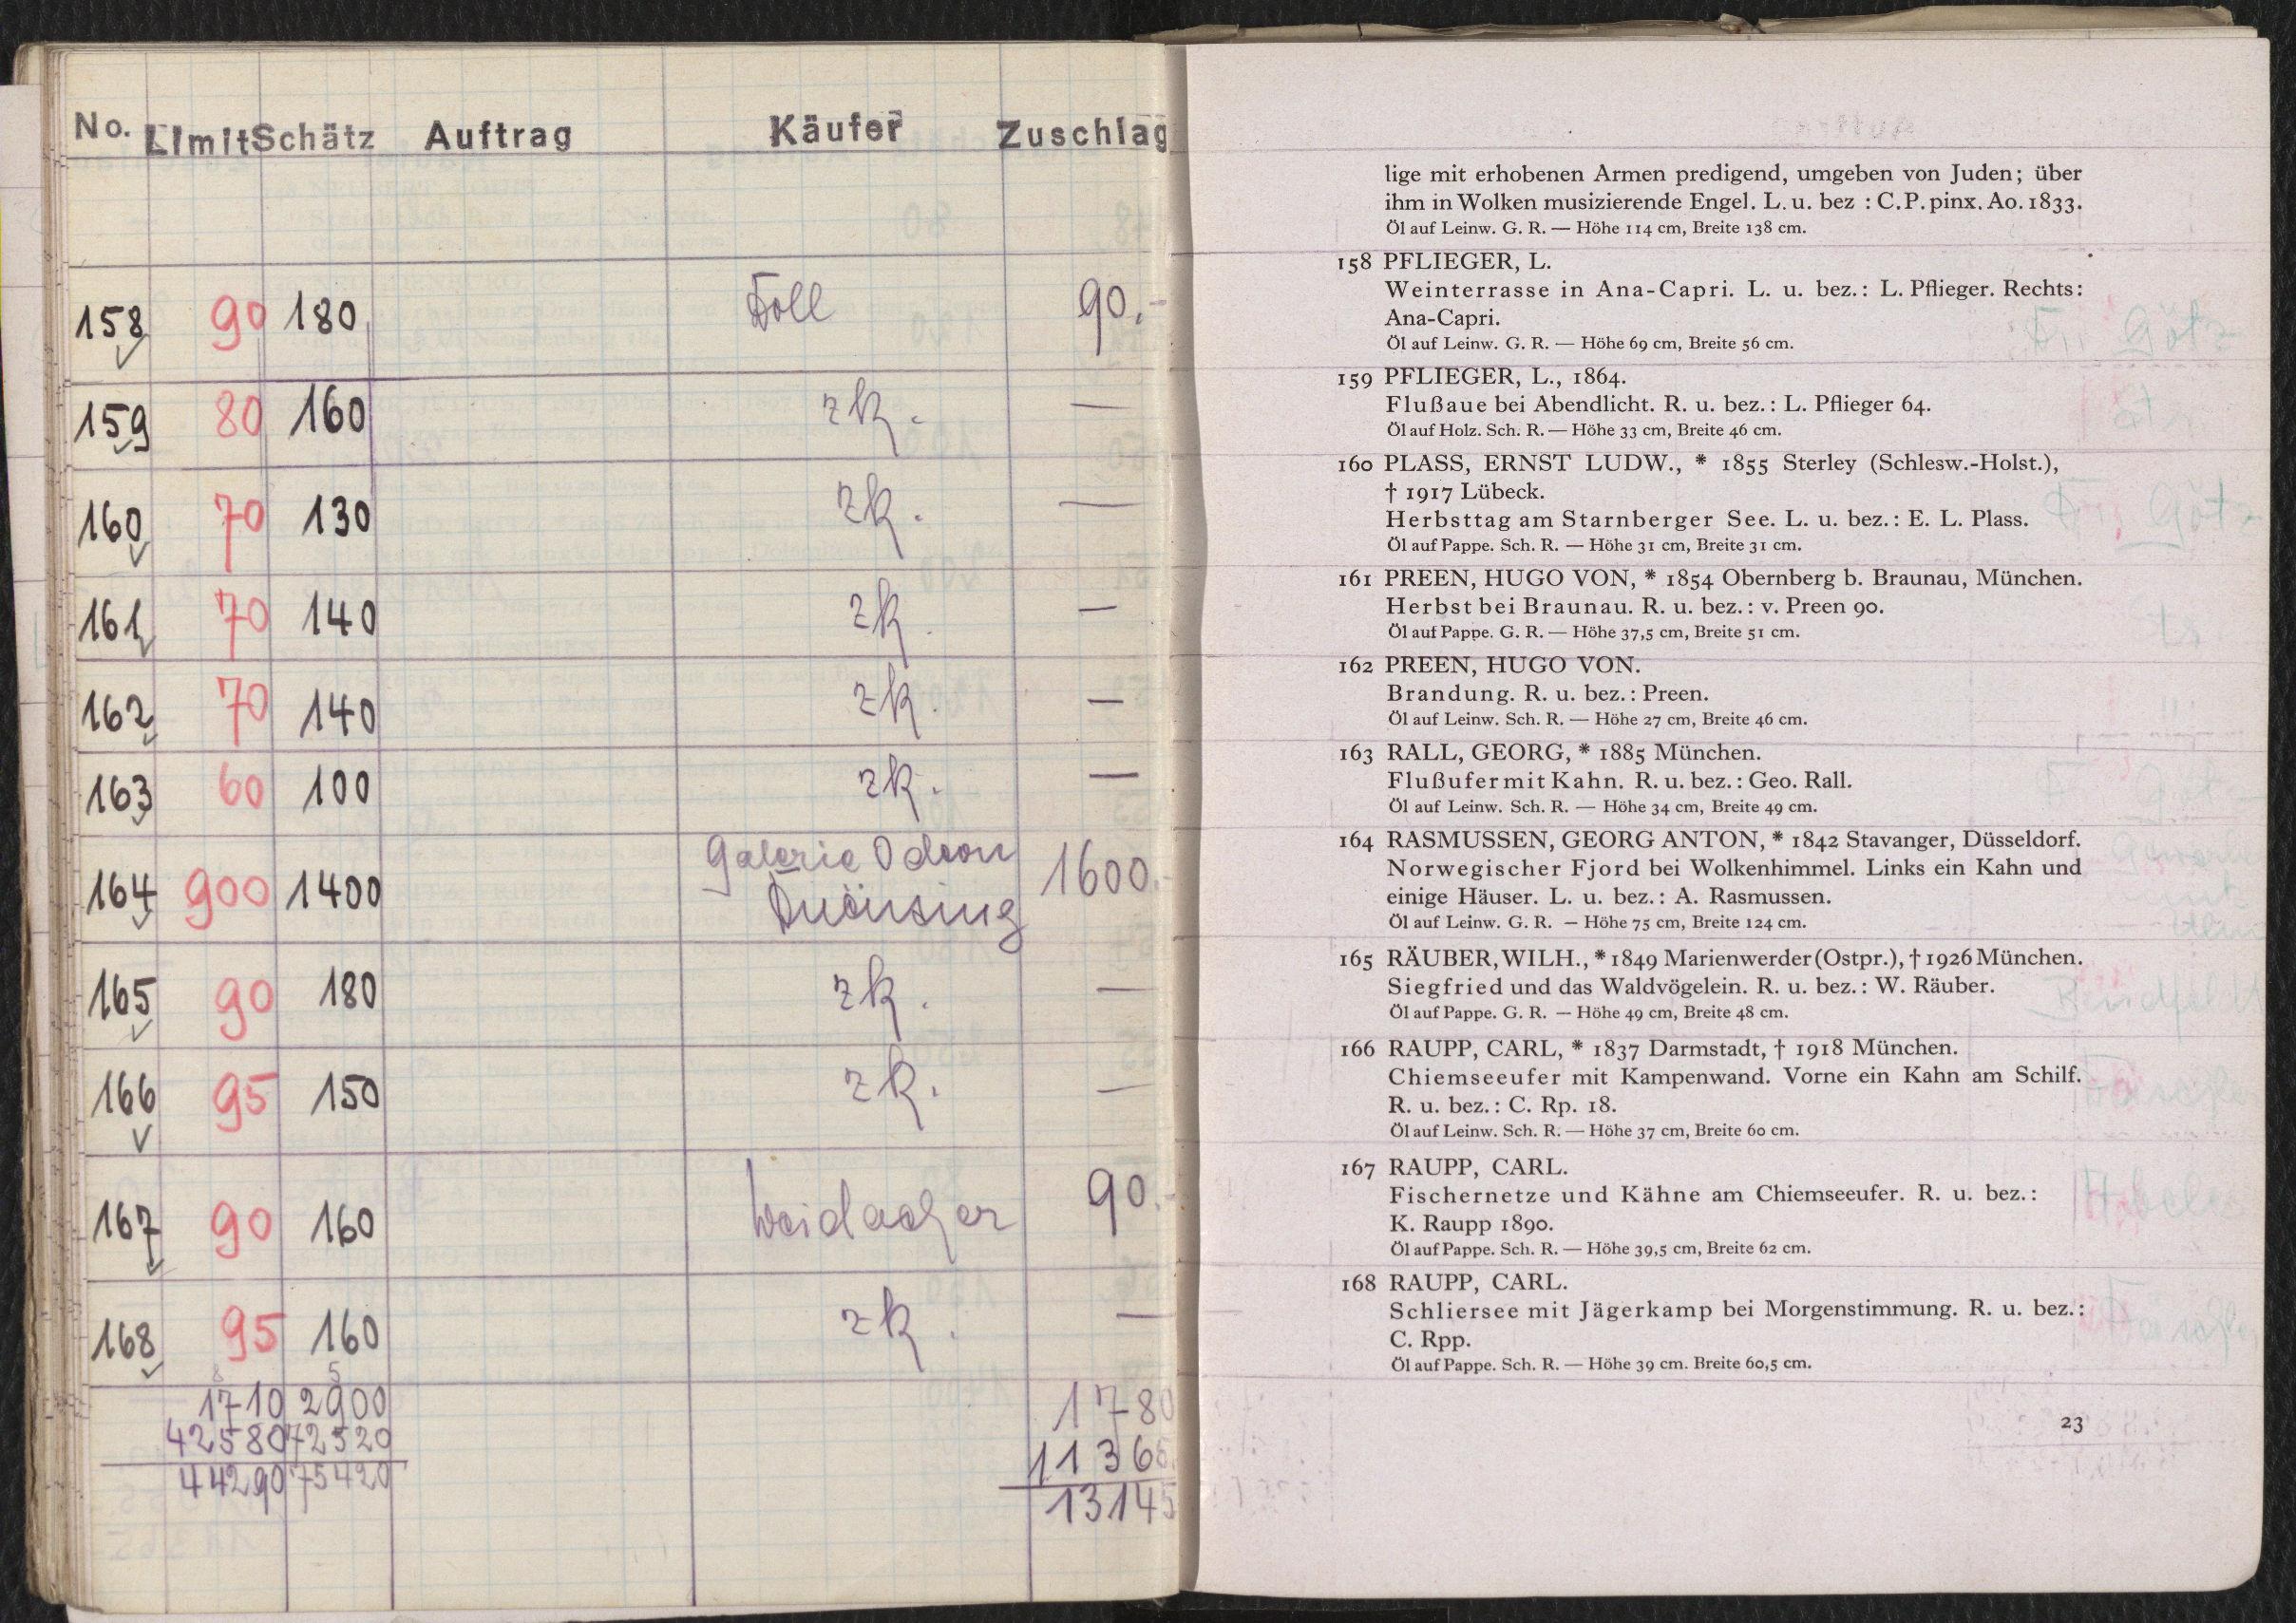 No. Limit Schätz Auftrag Käufer Zuschlag
158 90 180 Doll 90.-
159 80 160 zk. —
160 70 130 zk. —
161 70 140 zk. —
162 70 140 zk. —
163 60 100 zk. —
Galerie Odeon
164 900 1400 1600.-
165 90 180 zk. —
166 95 150 zk. —
167 90 160 Weidacher 90.-
168 95 160 zk. —
1710 2900 1780
42580 72520 11365
44290 75420 13145
lige mit erhobenen Armen predigend, umgeben von Juden; über
ihm in Wolken musizierende Engel. L. u. bez : C. P. pinx. Ao. 1833.
Öl auf Leinw. G. R. — Höhe 114 cm, Breite 138 cm.
158 PFLIEGER, L.
Weinterrasse in Ana-Capri. L. u. bez.: L. Pflieger. Rechts:
Ana-Capri.
Öl auf Leinw. G. R. — Höhe 69 cm, Breite 56 cm.
159 PFLIEGER, L., 1864.
Flußaue bei Abendlicht. R. u. bez.: L. Pflieger 64.
Öl auf Holz. Sch. R. — Höhe 33 cm, Breite 46 cm.
160 PLASS, ERNST LUDW., * 1855 Sterley (Schlesw.-Holst.),
† 1917 Lübeck.
Herbsttag am Starnberger See. L. u. bez.: E. L. Plass.
Öl auf Pappe. Sch. R. — Höhe 31 cm, Breite 31 cm.
161 PREEN, HUGO VON, * 1854 Obernberg b. Braunau, München.
Herbst bei Braunau. R. u. bez.: v. Preen 90.
Öl auf Pappe. G. R. — Höhe 37,5 cm, Breite 51 cm.
162 PREEN, HUGO VON.
Brandung. R. u. bez.: Preen.
Öl auf Leinw. Sch. R. — Höhe 27 cm, Breite 46 cm.
163 RALL, GEORG, * 1885 München.
Flußufer mit Kahn. R. u. bez.: Geo. Rall.
Öl auf Leinw. Sch. R. — Höhe 34 cm, Breite 49 cm.
164 RASMUSSEN, GEORG ANTON, * 1842 Stavanger, Düsseldorf.
Norwegischer Fjord bei Wolkenhimmel. Links ein Kahn und
einige Häuser. L. u. bez.: A. Rasmussen.
Öl auf Leinw. G. R. — Höhe 75 cm, Breite 124 cm.
165 RÄUBER, WILH., * 1849 Marienwerder (Ostpr.), † 1926 München.
Siegfried und das Waldvögelein. R. u. bez.: W. Räuber.
Öl auf Pappe. G. R. — Höhe 49 cm, Breite 48 cm.
166 RAUPP, CARL, * 1837 Darmstadt, † 1918 München.
Chiemseeufer mit Kampenwand. Vorne ein Kahn am Schilf.
R. u. bez.: C. Rp. 18.
Öl auf Leinw. Sch. R. — Höhe 37 cm, Breite 60 cm.
167 RAUPP, CARL.
Fischernetze und Kähne am Chiemseeufer. R. u. bez.:
K. Raupp 1890.
Öl auf Pappe. Sch. R. — Höhe 39,5 cm, Breite 62 cm.
168 RAUPP, CARL.
Schliersee mit Jägerkamp bei Morgenstimmung. R. u. bez.:
C. Rpp.
Öl auf Pappe. Sch. R. — Höhe 39 cm. Breite 60,5 cm.
23